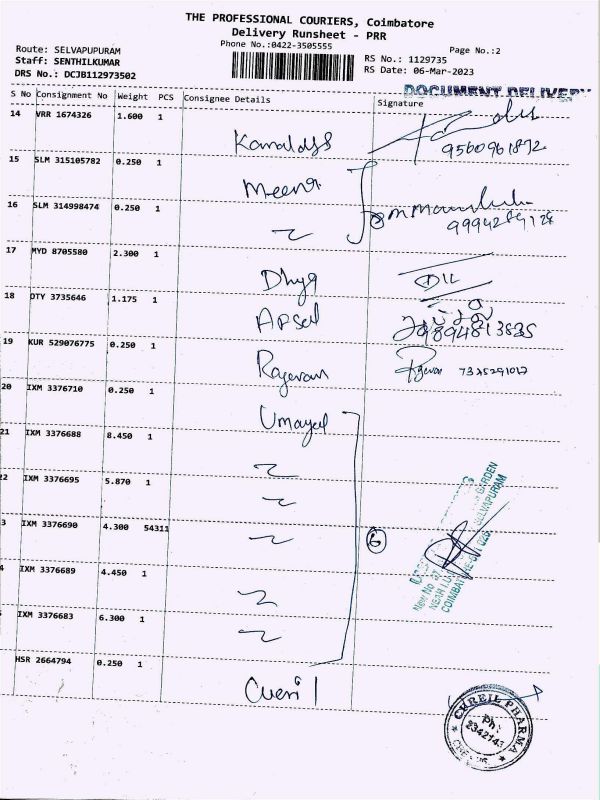 THE PROFESSIONAL COURIERS, Coimbatore
Delivery Runsheet - PRR
Phone No.:0422-3505555
Page No.:2
Route: SELVAPUPURAM
Staff: SENTHILKUMAR
DRS No.: DCJB112973502
RS No.: 1129735
RS Date: 06-Mar-2023
DOCUMENT DELIVERY
S No Consignment No Weight PCS Consignee Details Signature
14 VRR 1674326 1.600 1
9560961872
15 SLM 315105782 0.250 1 Meena
16 SLM 314998474 0.250 1
17 MYD 8705580 2.300 1 Dhya
18 OTY 3735646 1.175 1 Apsal
9894813535
19 KUR 529076775 0.250 1 Rajevan
20 IXM 3376710 0.250 1 Umayal
21 IXM 3376688 8.450 1
22 IXM 3376695 5.870 1
3 IXM 3376690 4.300 54311
6
4 IXM 3376689 4.450 1
IXM 3376683 6.300 1
HSR 2664794 0.250 1
GARDEN
New No
NEAR
SELVAPURAM
CUREIL PHARMA
Ph:
2342143